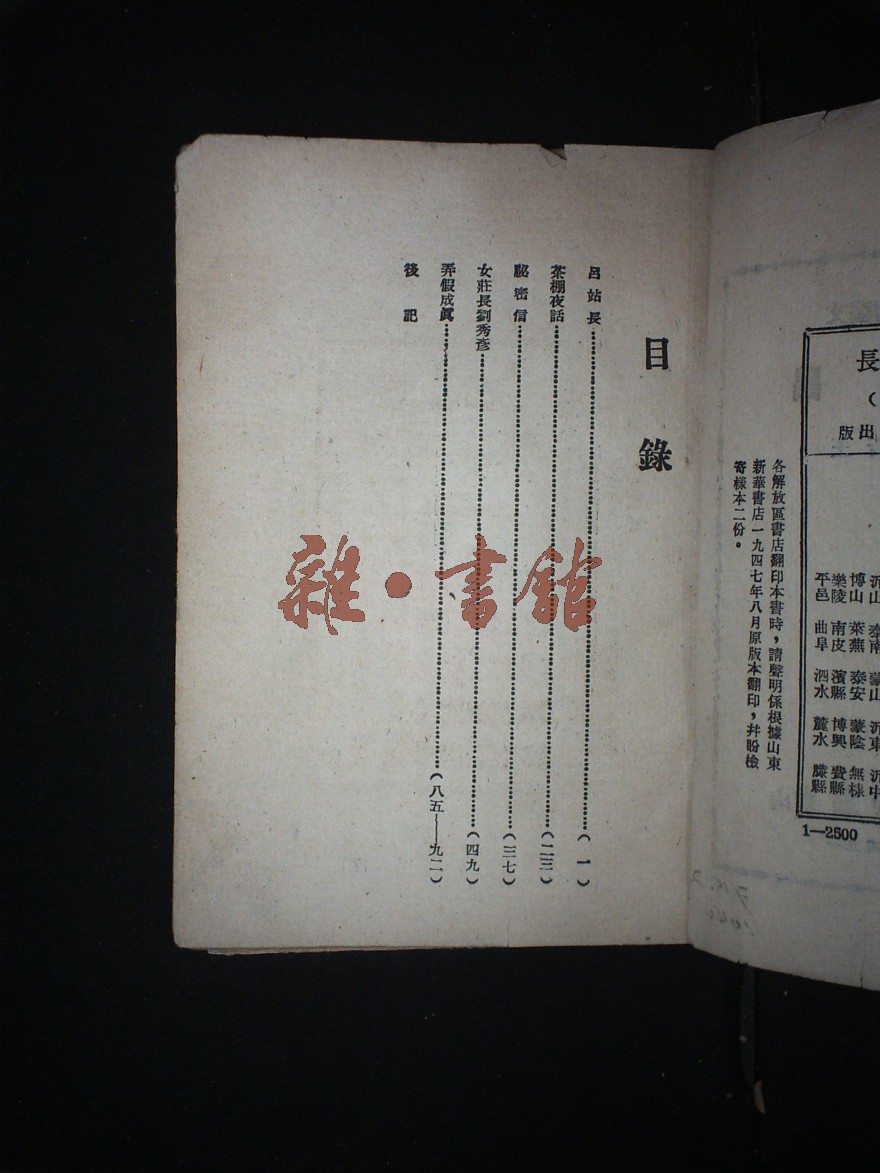 長
（
出版
沂山 泰南 蒙山 沂東 沂中
博山 萊蕪 泰安 蒙陰 無棣
樂陵 南皮 濱縣 博興 費縣
平邑 曲阜 泗水 麓水 滕縣
1—2500
各解放區書店翻印本書時，請聲明係根據山東
新華書店一九四七年八月原版本翻印，幷盼檢
寄樣本二份。
目錄
呂站長……（一）
茶棚夜話……（二三）
秘密信……（三七）
女莊長劉秀彥……（四九）
弄假成眞……（八五——九二）
後記
雜·書館